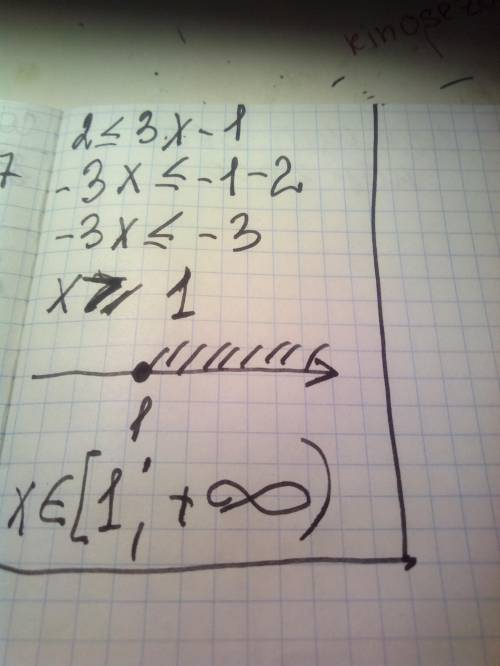 kinop
2 ≤ 3x - 1
7
-3x ≤ -1-2
-3x ≤ -3
x ≥ 1
1
x ∈ [1; +∞)